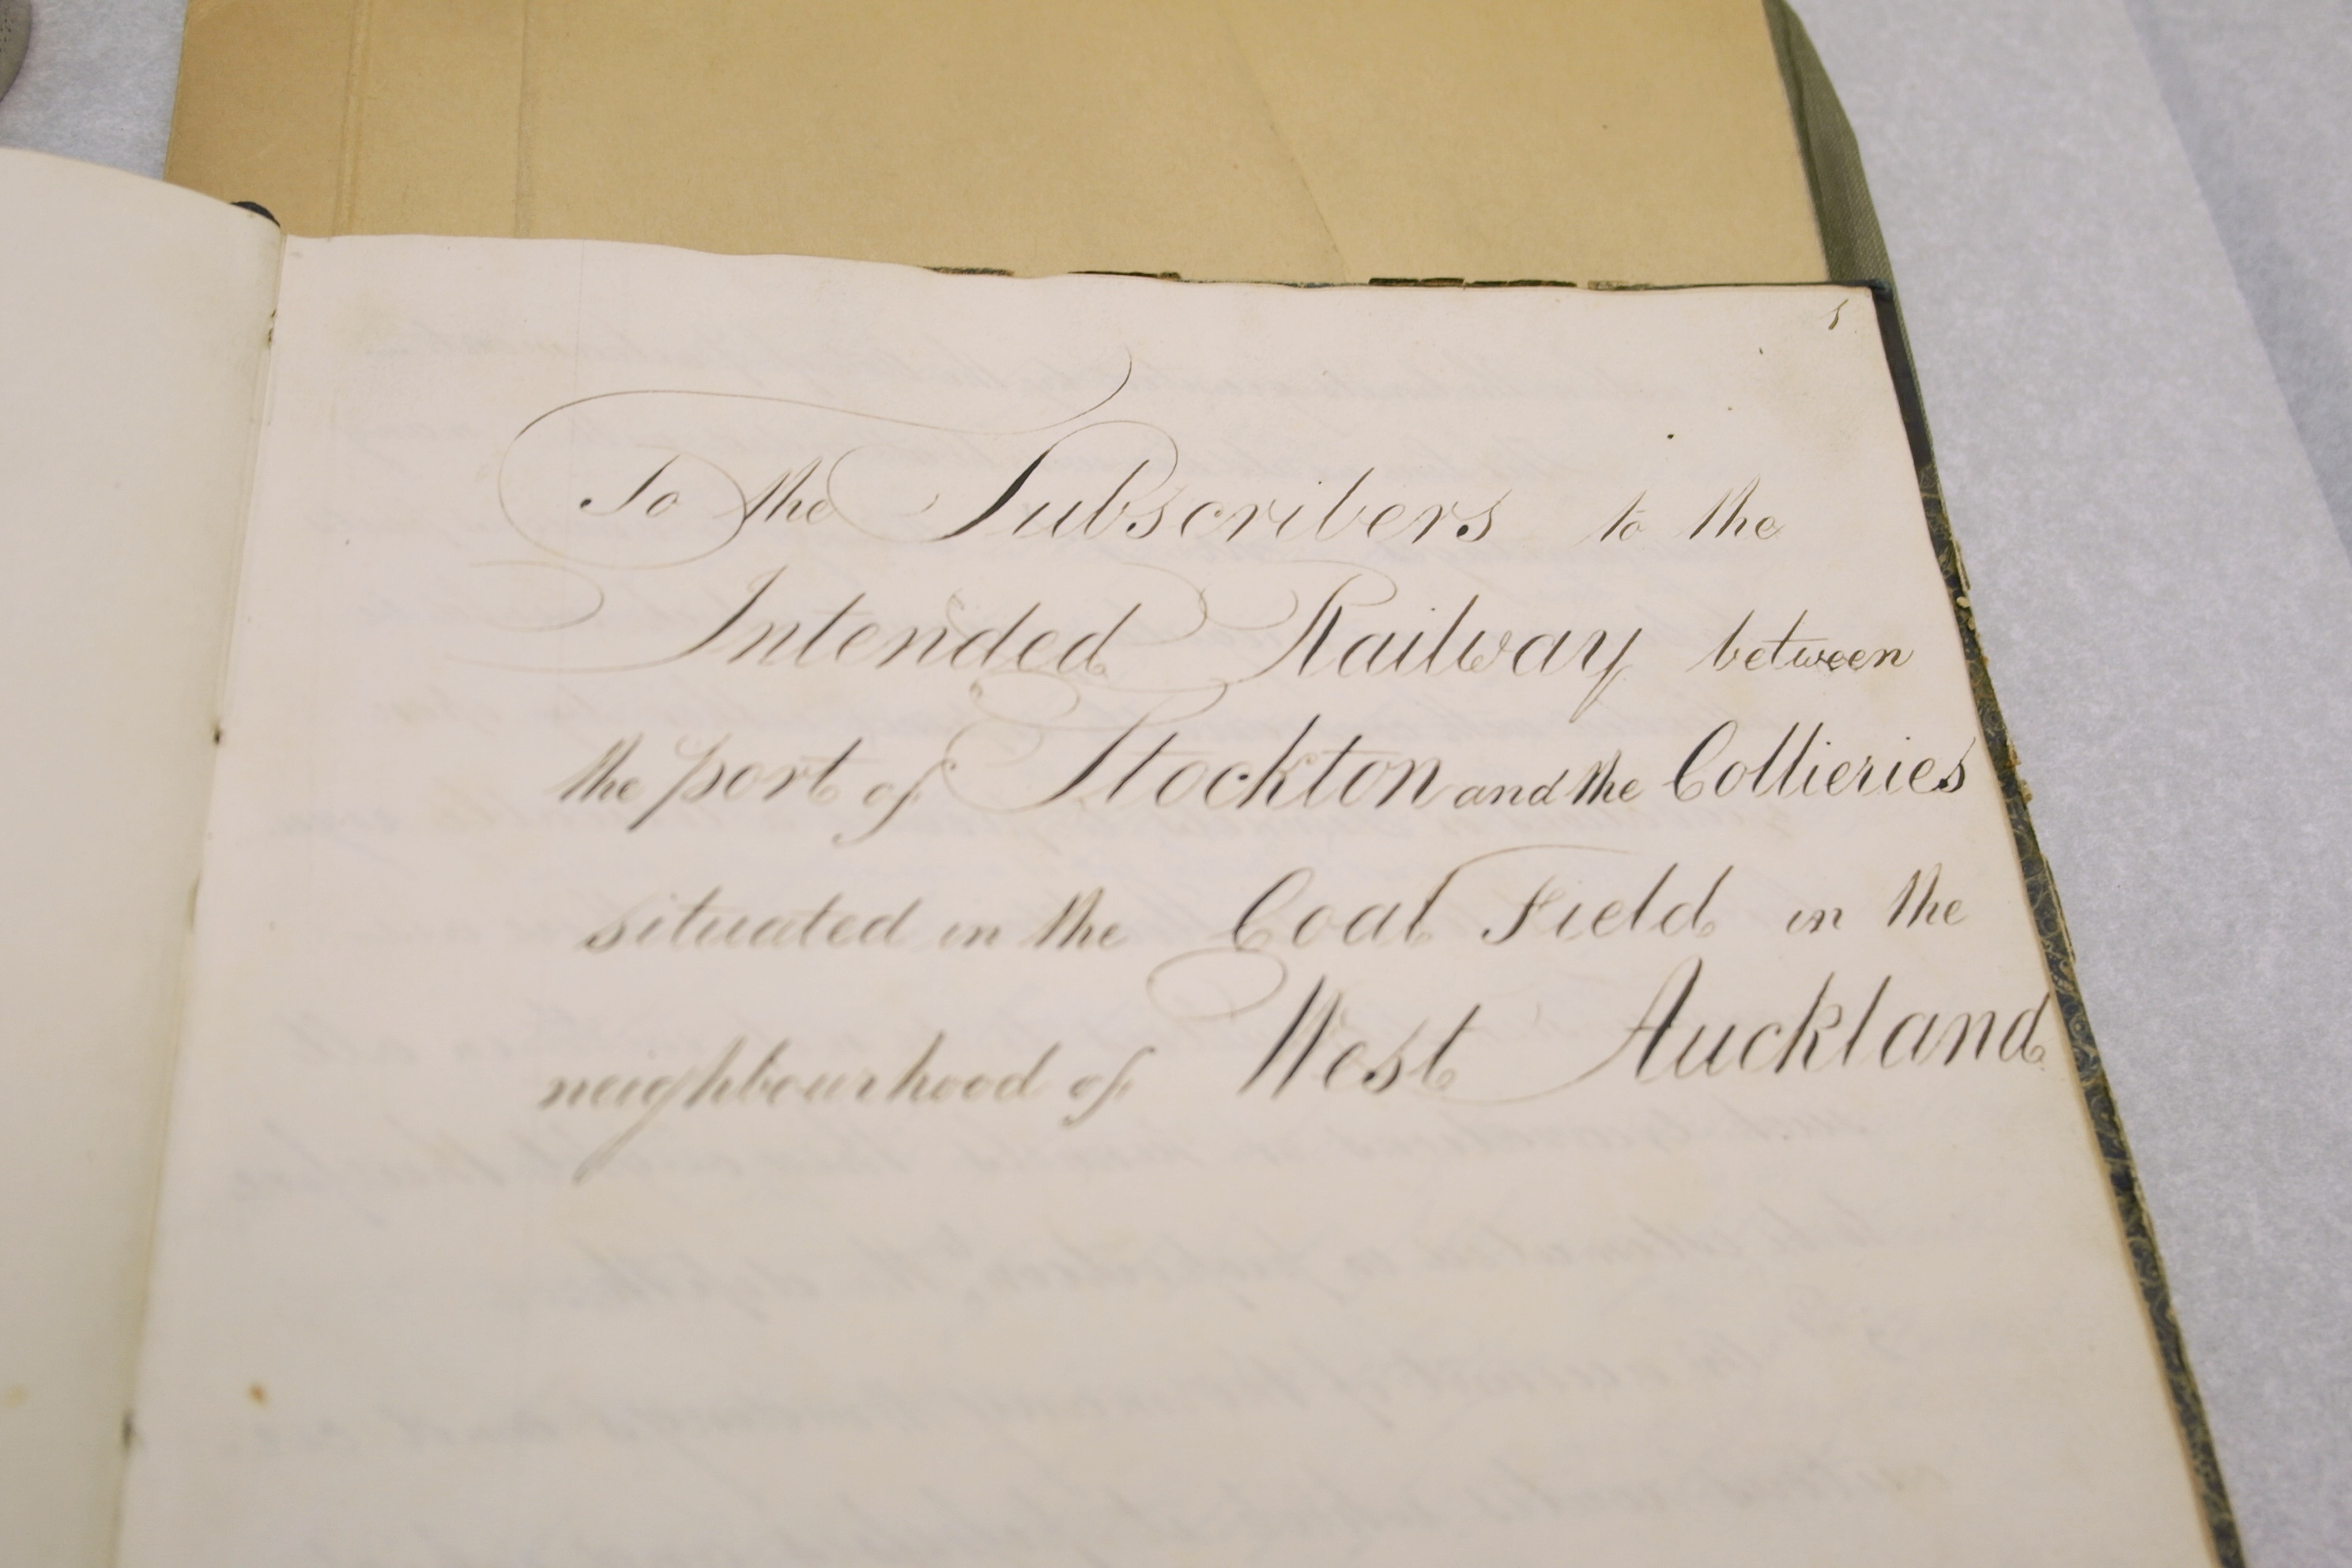 1
To the Subscribers to the
Intended Railway between
the port of Stockton and the Collieries
situated in the Coal Field in the
neighbourhood of West Auckland